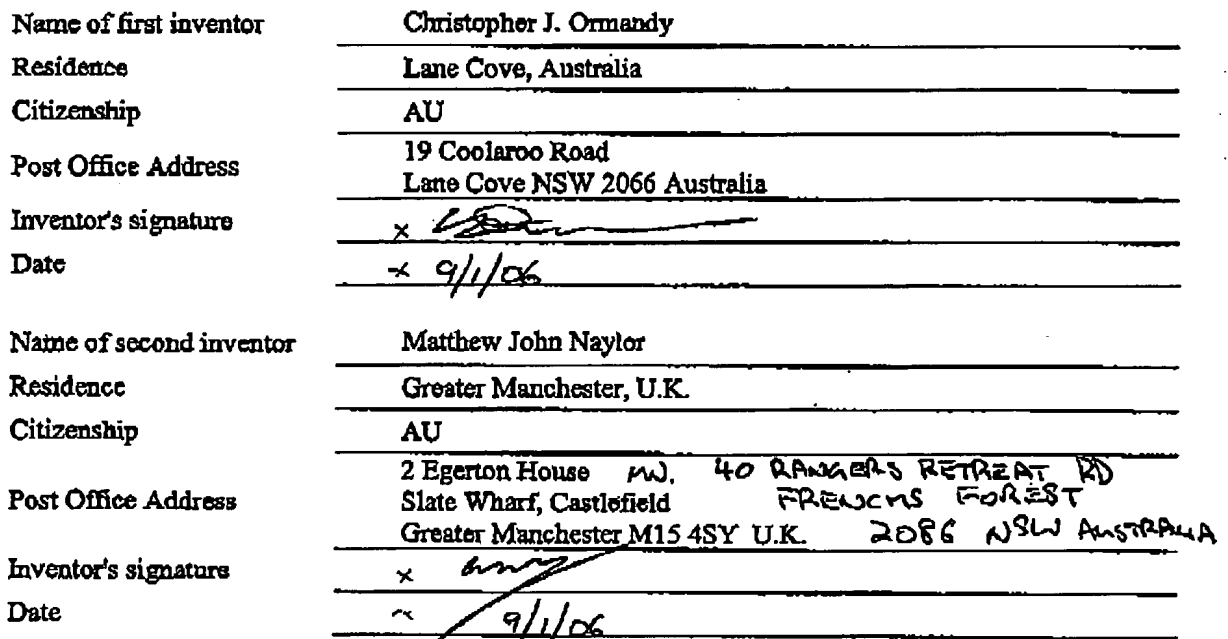 Name of first inventor Christopher J. Ormandy
Residence Lane Cove, Australia
Citizenship AU
Post Office Address 19 Coolaroo Road
Lane Cove NSW 2066 Australia
Inventor's signature x
Date x 9/1/06
Name of second inventor Matthew John Naylor
Residence Greater Manchester, U.K.
Citizenship AU
2 Egerton House 40 RANGERS RETREAT RD
Post Office Address Slate Wharf, Castlefield FRENCHS FOREST
Greater Manchester M15 4SY U.K. 2086 NSW AUSTRALIA
Inventor's signature x
Date 9/1/06